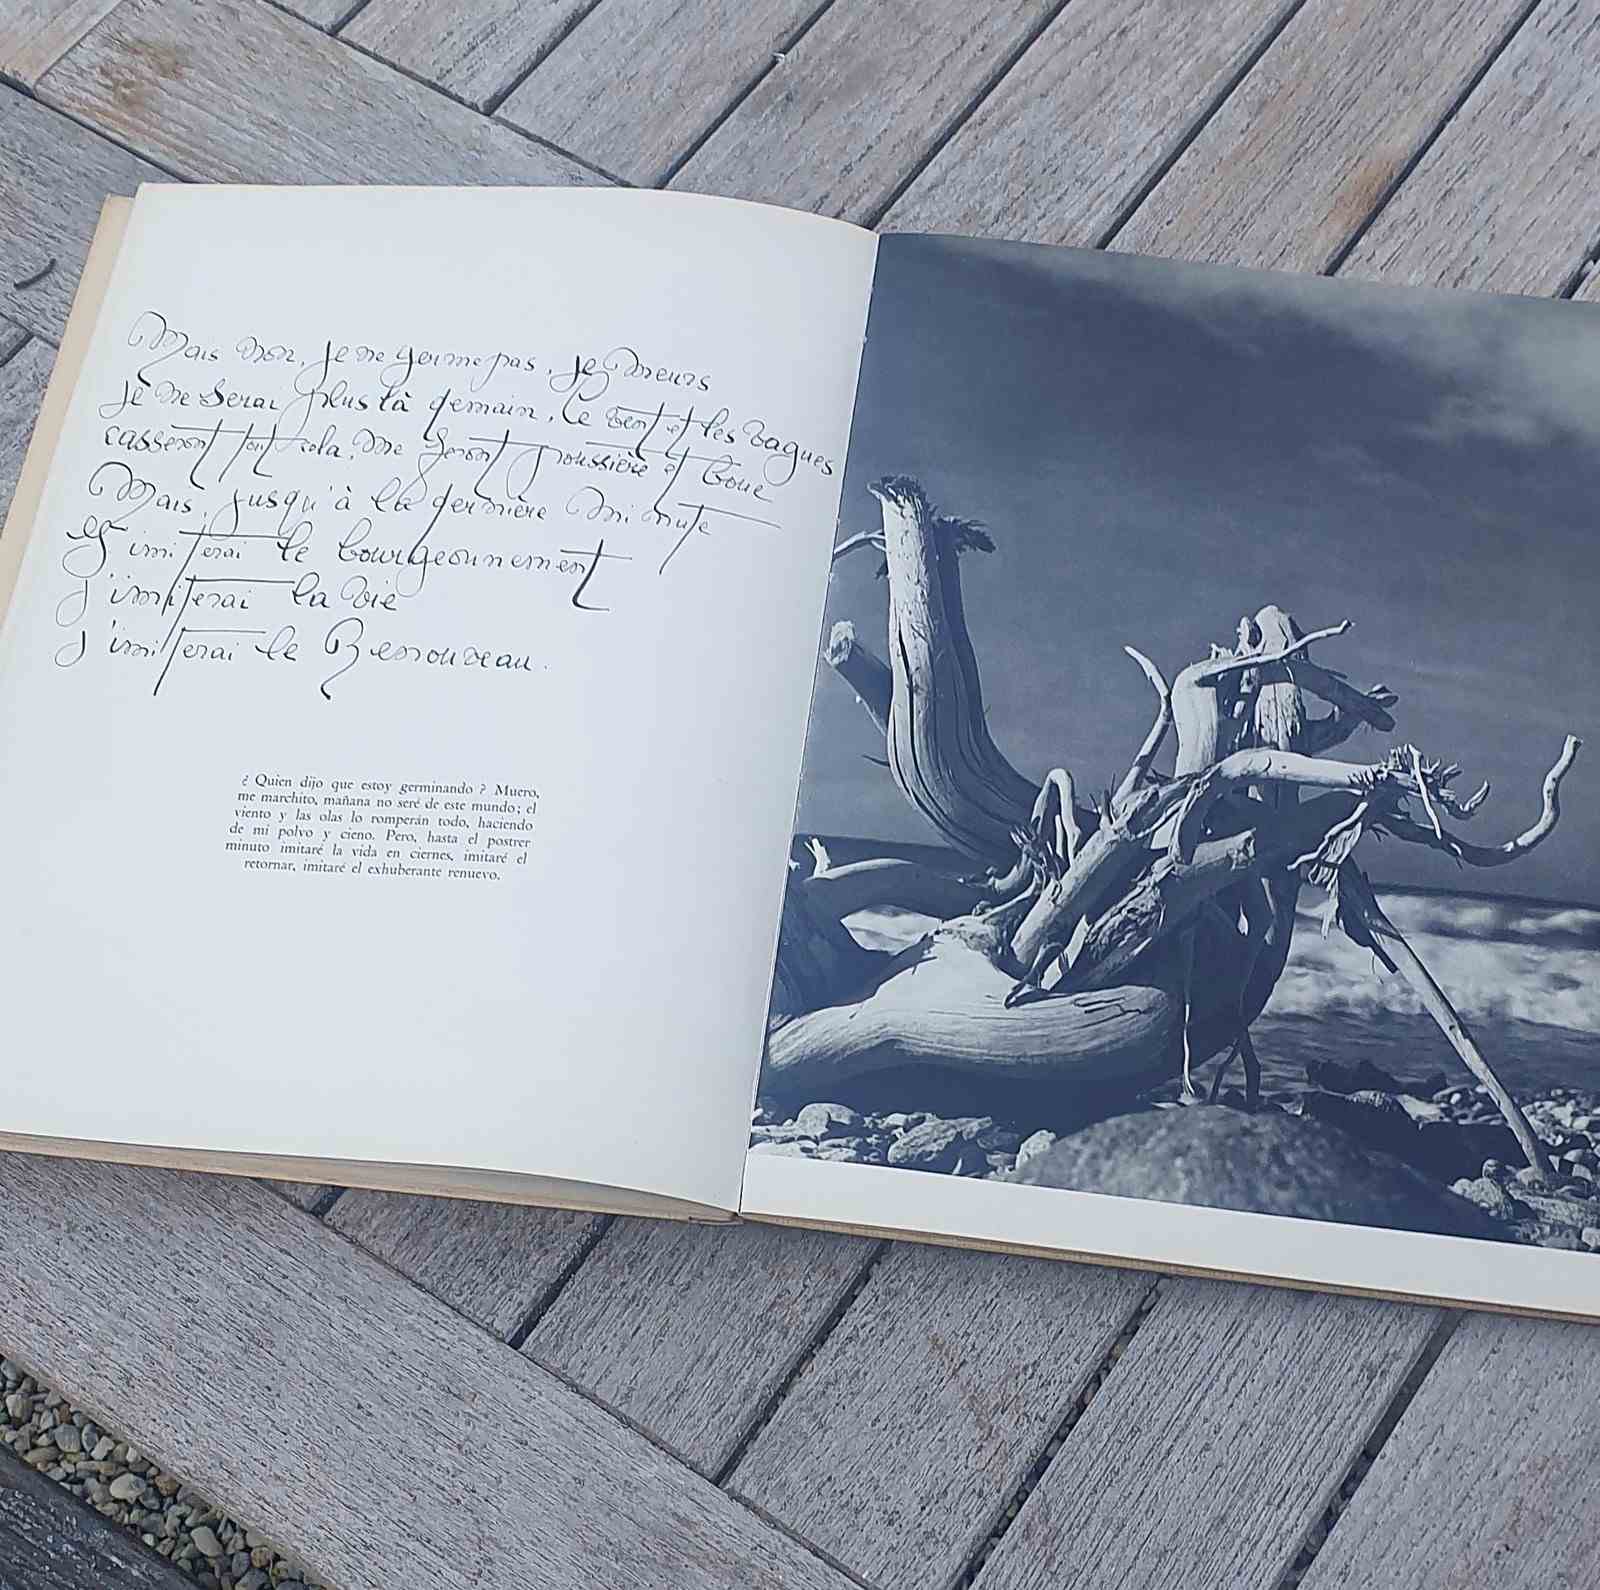 Mais non, je ne germe pas, je meurs
je ne serai plus là demain, le vent et les vagues
casseront tout cela, me feront poussière et boue
Mais, jusqu'à la dernière minute
j'imiterai le bourgeonnement
j'imiterai la vie
j'imiterai le Renouveau.
¿ Quien dijo que estoy germinando ? Muero,
me marchito, mañana no seré de este mundo; el
viento y las olas lo romperán todo, haciendo
de mi polvo y cieno. Pero, hasta el postrer
minuto imitaré la vida en ciernes, imitaré el
retornar, imitaré el exhuberante renuevo.